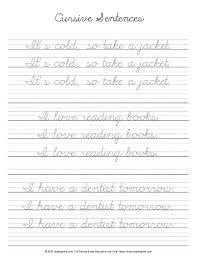 Cursive Sentences
It's cold, so take a jacket.
It's cold, so take a jacket.
It's cold, so take a jacket.
I love reading books.
I love reading books.
I love reading books.
I have a dentist tomorrow.
I have a dentist tomorrow.
I have a dentist tomorrow.